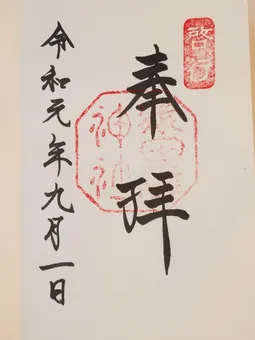 啓行
奉拝
神社
令和元年九月一日